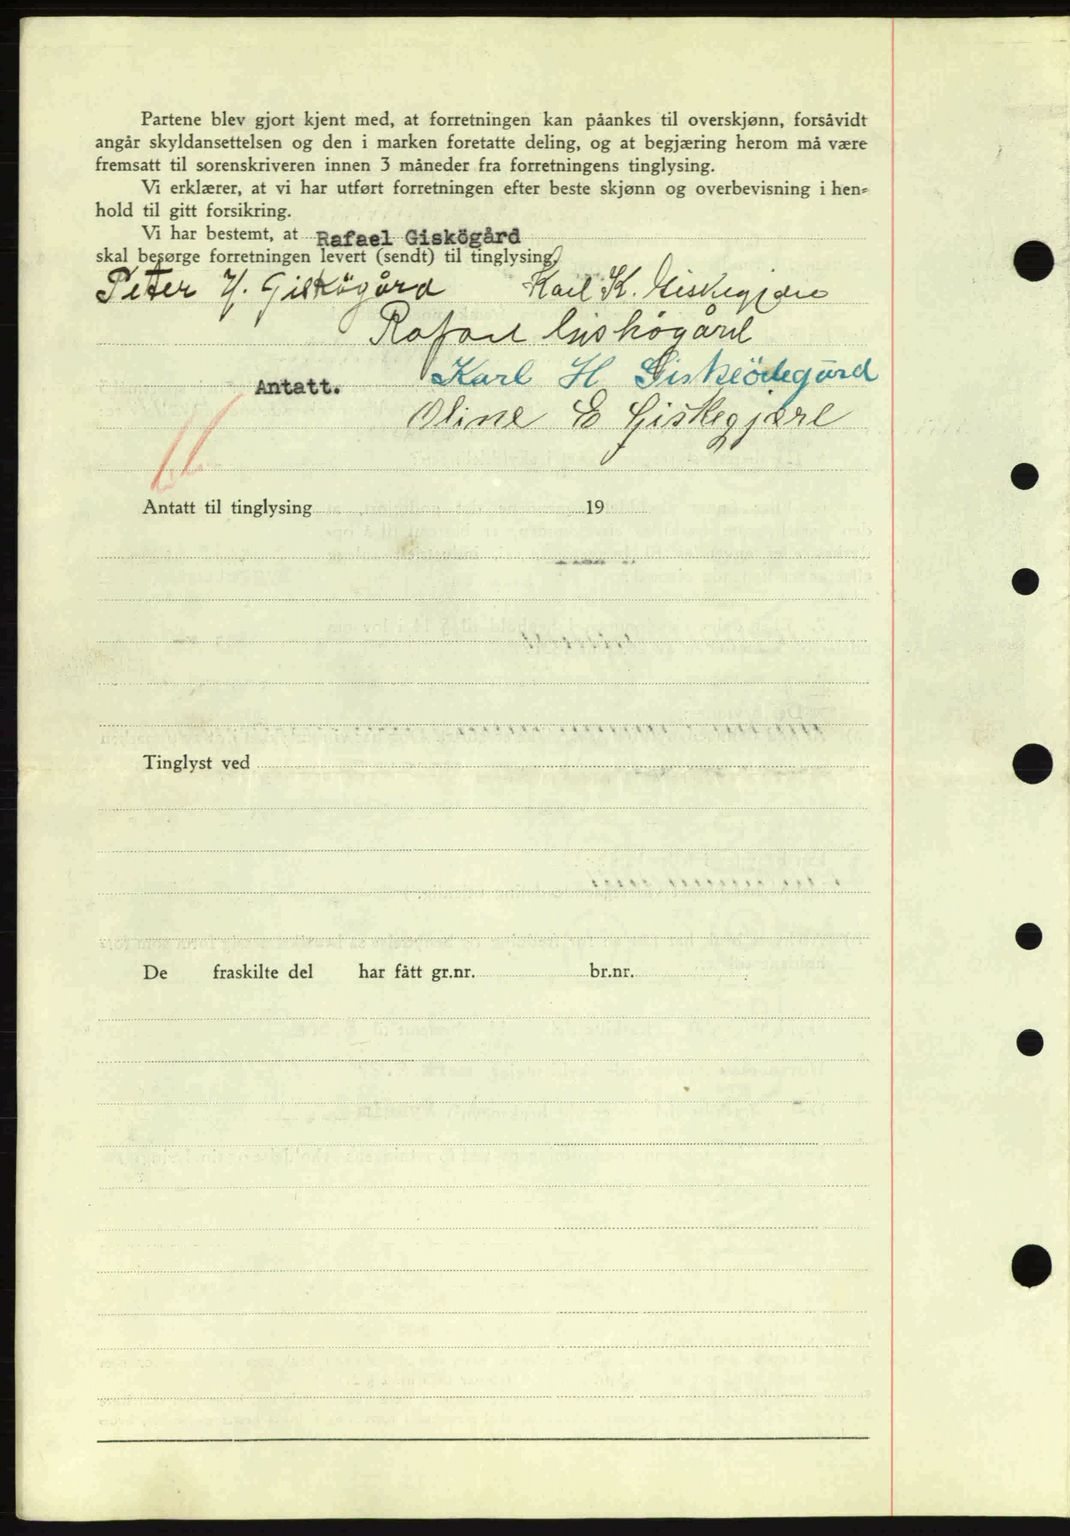 Partene blev gjort kjent med, at forretningen kan påankes til overskjønn, forsåvidt
angår skyldansettelsen og den i marken foretatte deling, og at begjæring herom må være
fremsatt til sorenskriveren innen 3 måneder fra forretningens tinglysing.
Vi erklærer, at vi har utført forretningen efter beste skjønn og overbevisning i hen=
hold til gitt forsikring.
Vi har bestemt, at Rafael Giskögård
skal besørge forretningen levert (sendt) til tinglysing.
Peter Giskögård Karl K. Giskegjære
Rafael Giskögård
Karl H Giskeödegård
Antatt.
Oline E Giskegjære
Antatt til tinglysing 19
Tinglyst ved
De fraskilte del har fått gr.nr. br.nr.